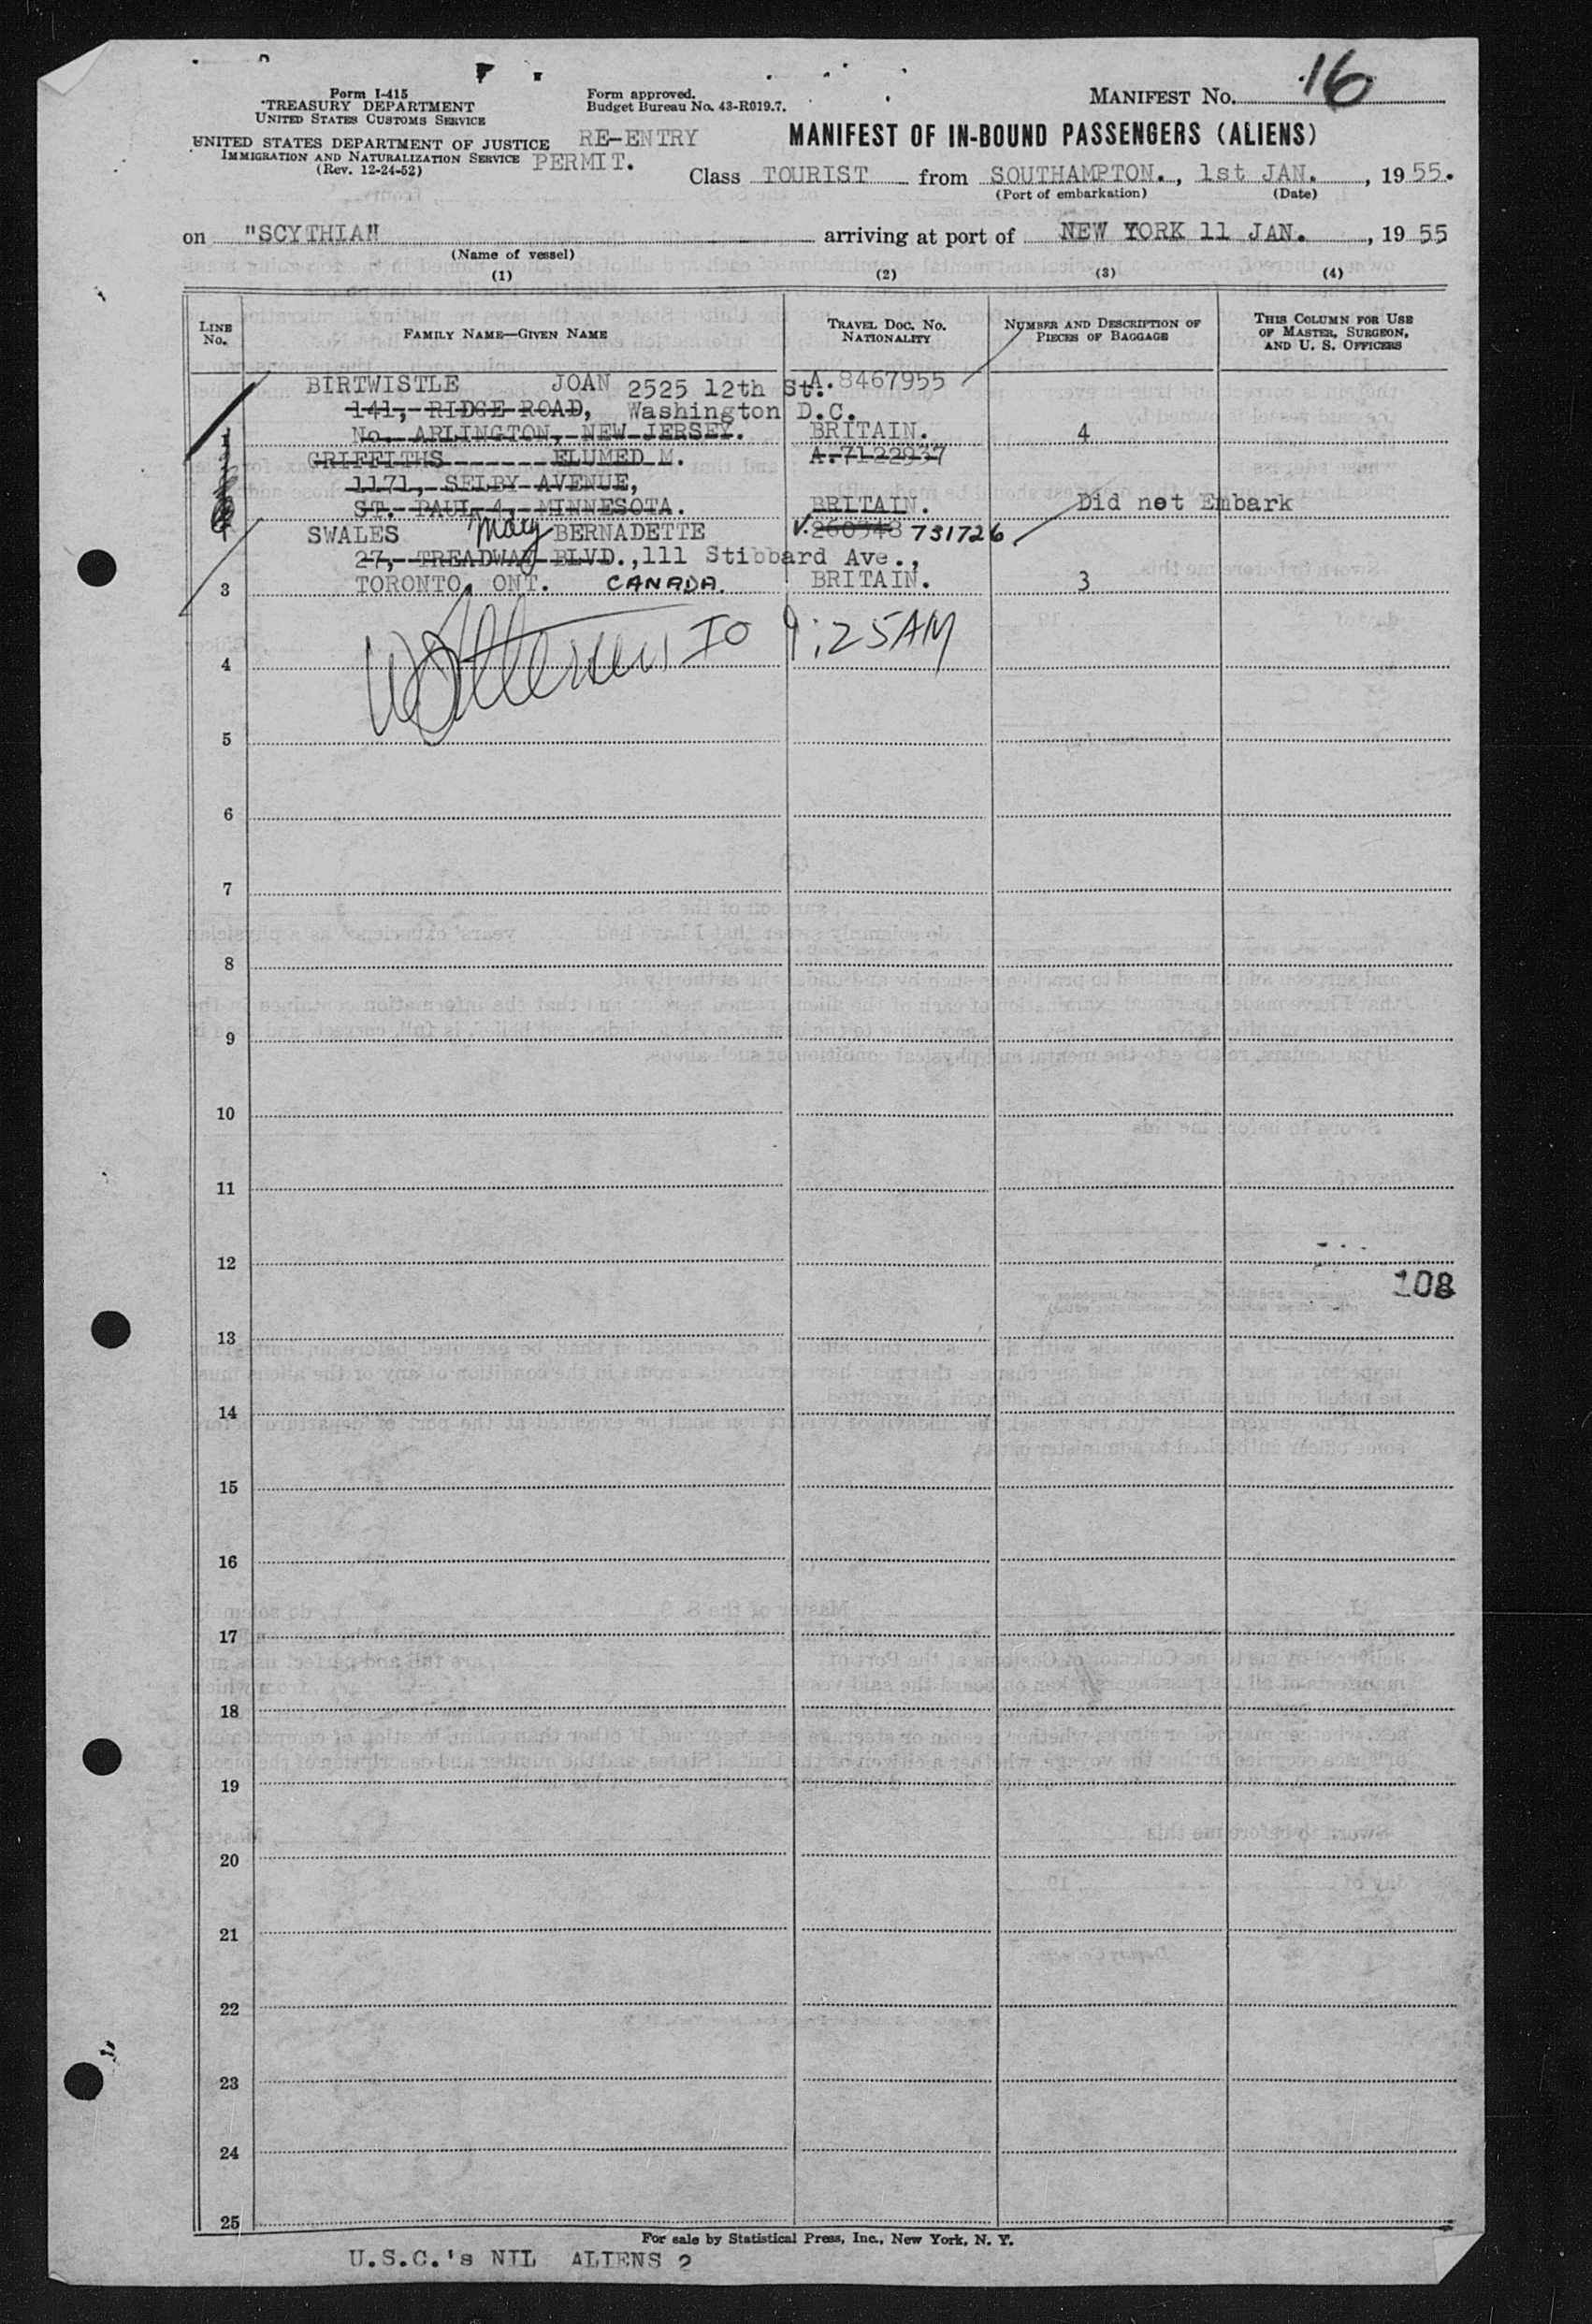 MANIFEST NO. 16
Form I-415
TREASURY DEPARTMENT
UNITED STATES CUSTOMS SERVICE
UNITED STATES DEPARTMENT OF JUSTICE
IMMIGRATION AND NATURALIZATION SERVICE
(Rev. 12-24-52)
Form approved.
Budget Bureau No. 43-R019.7.
RE-ENTRY
PERMIT.
MANIFEST OF IN-BOUND PASSENGERS (ALIENS)
Class TOURIST from SOUTHAMPTON., 1st JAN., 1955.
(Port of embarkation) (Date)
on "SCYTHIA" arriving at port of NEW YORK 11 JAN., 1955
(Name of vessel)
(1) (2) (3) (4)
LINE No. FAMILY NAME—GIVEN NAME TRAVEL DOC. NO. NATIONALITY NUMBER AND DESCRIPTION OF PIECES OF BAGGAGE THIS COLUMN FOR USE OF MASTER, SURGEON, AND U. S. OFFICERS
BIRTWISTLE JOAN 2525 12th St. A.8467955
141, RIDGE ROAD, Washington D.C.
1 No. ARLINGTON, NEW JERSEY. BRITAIN. 4
GRIFFITHS ELUMED M. A.7122937
1171, SELBY AVENUE,
ST. PAUL 4, MINNESOTA. BRITAIN. Did not Embark
SWALES May BERNADETTE V.260948 731726
27, TREADWAY BLVD., 111 Stibbard Ave.,
3 TORONTO, ONT. CANADA. BRITAIN. 3
IO 9:25AM
4
5
6
7
8
9
10
11
12
108
13
14
15
16
17
18
19
20
21
22
23
24
25
For sale by Statistical Press, Inc., New York, N. Y.
U.S.C.'s NIL ALIENS 2